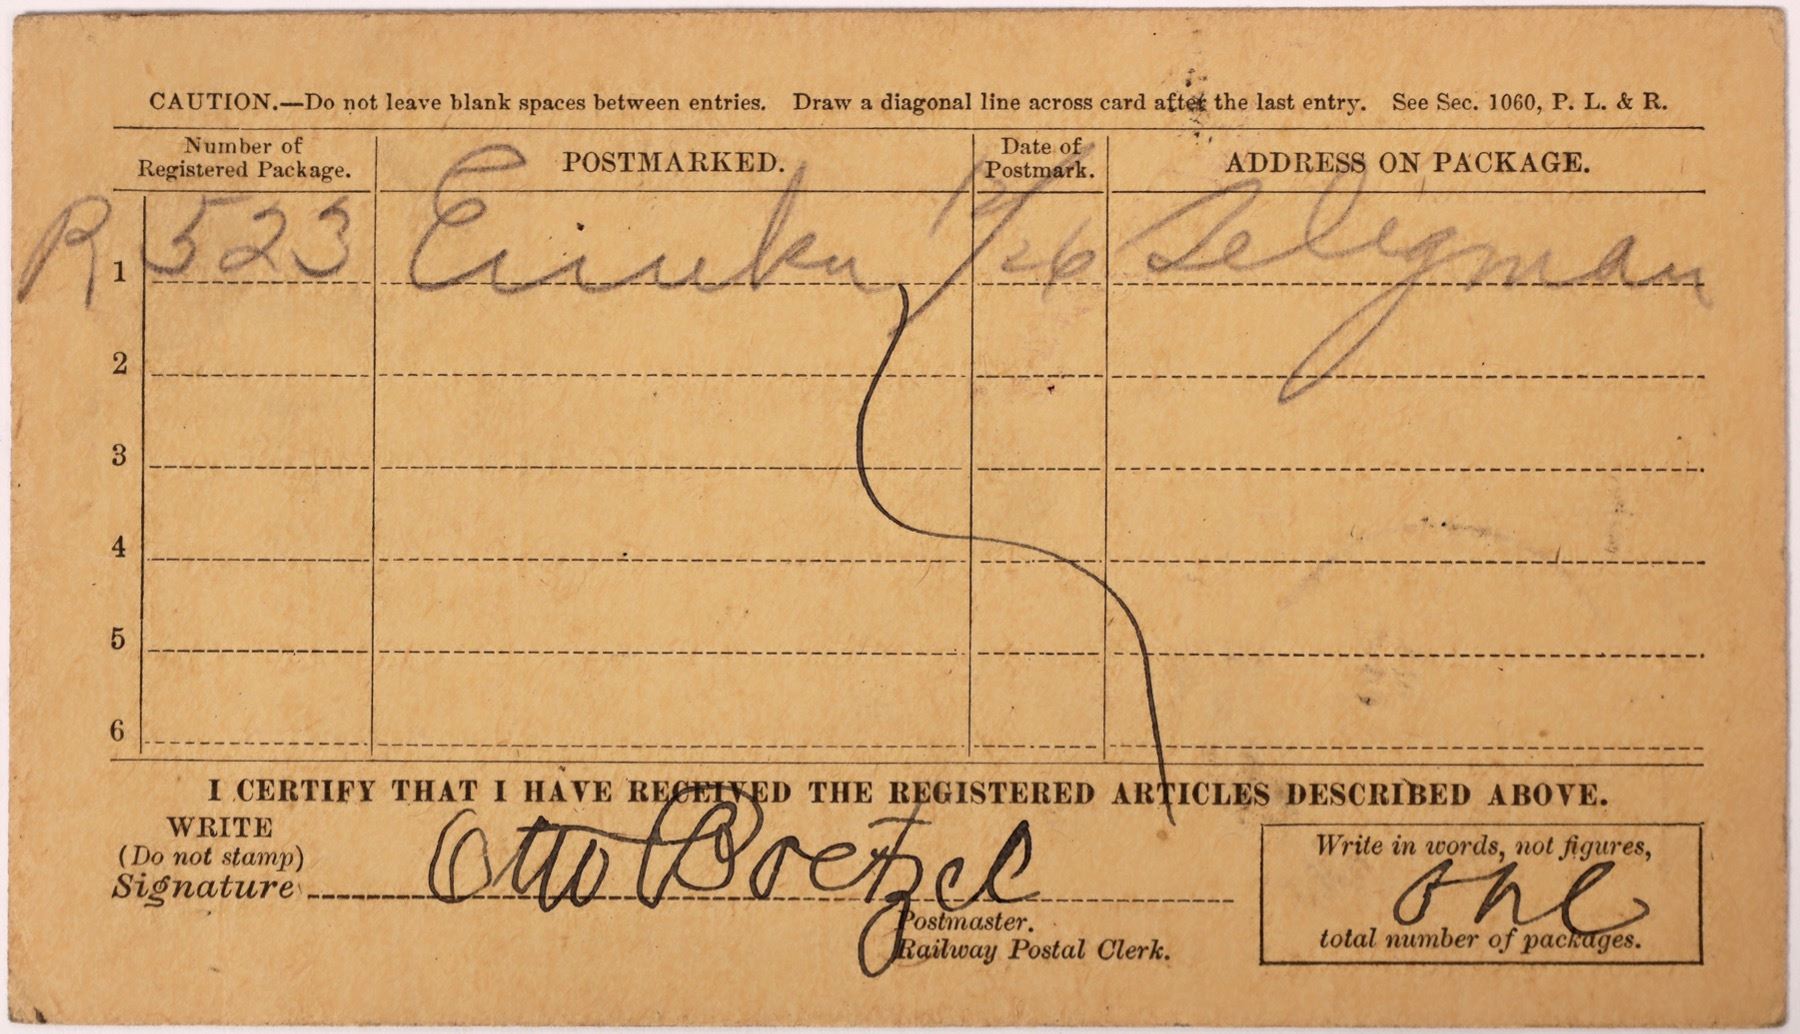 CAUTION.—Do not leave blank spaces between entries. Draw a diagonal line across card after the last entry. See Sec. 1060, P. L. & R.
Number of Registered Package.
POSTMARKED.
Date of Postmark.
ADDRESS ON PACKAGE.
1 R 523 12/26 Seligman
2
3
4
5
6
I CERTIFY THAT I HAVE RECEIVED THE REGISTERED ARTICLES DESCRIBED ABOVE.
WRITE
(Do not stamp)
Signature Otto Boetzel
Postmaster.
Railway Postal Clerk.
Write in words, not figures,
one
total number of packages.